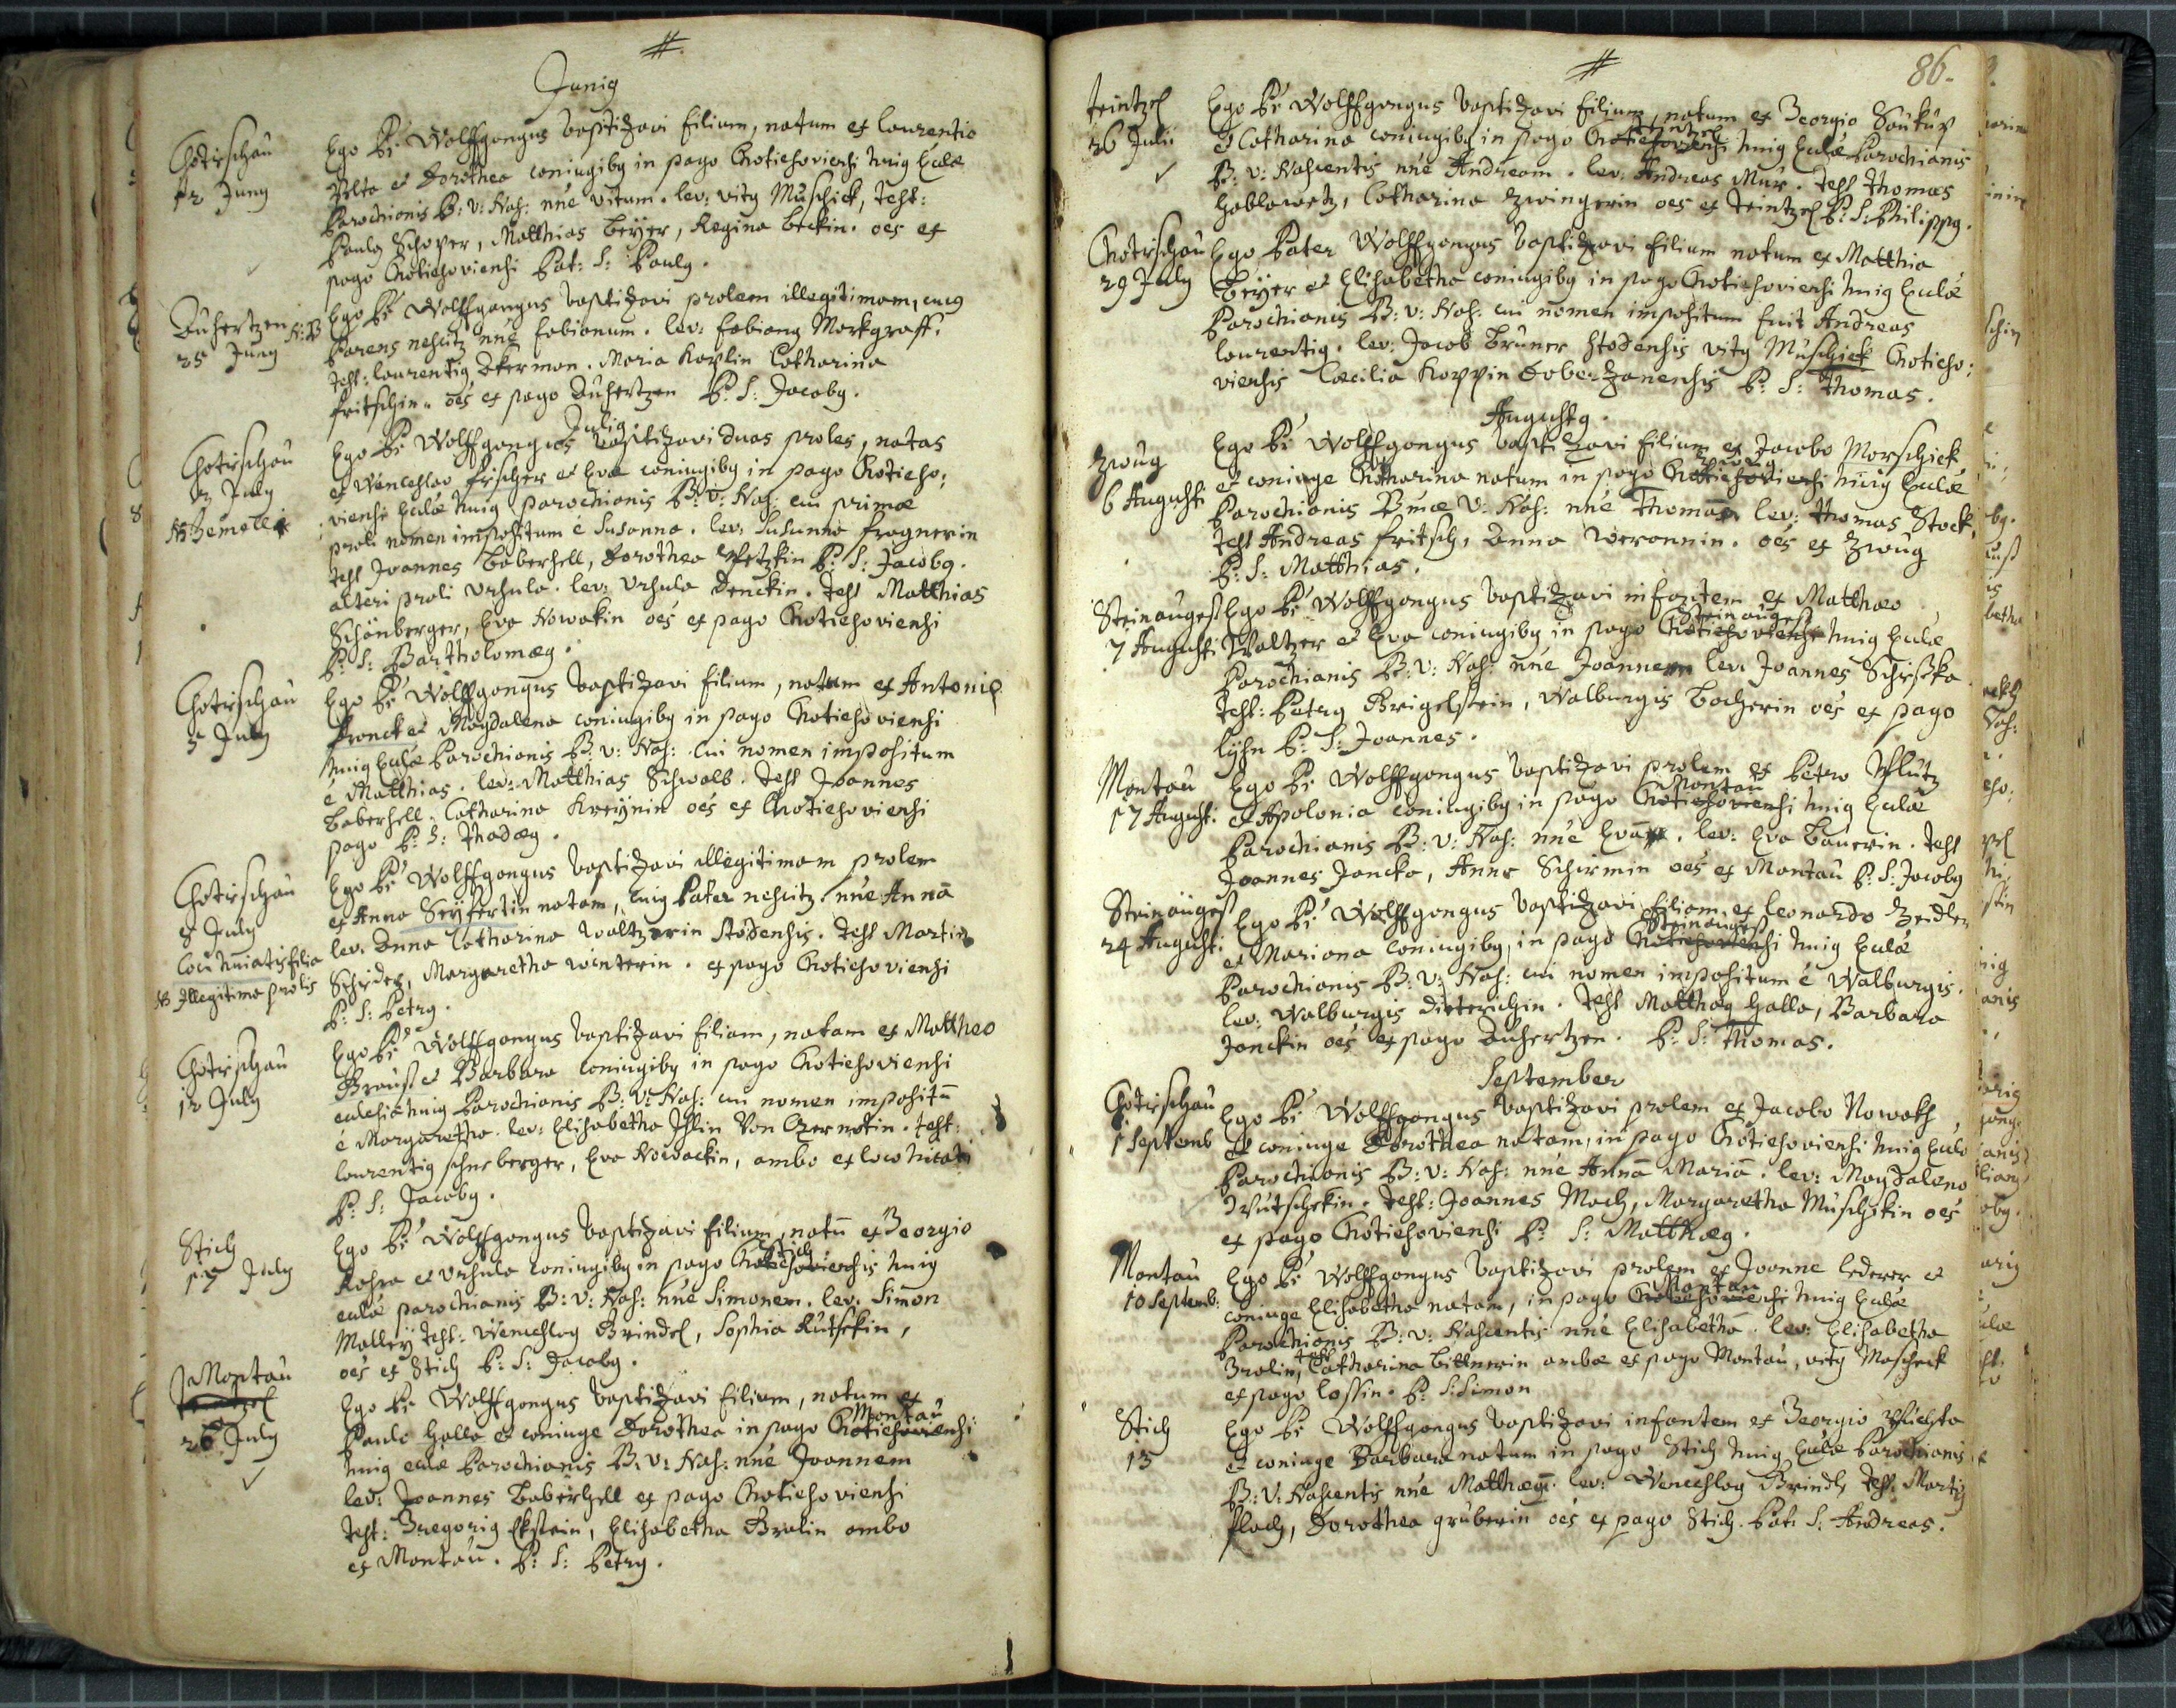 #
Junig
Chotieschau
12 Juny
Ego Pr Wolffgangus baptizavi filium, natum ex Laurentio
et Dorothea coniugibg in pago Chotiesoviensi huig Eccłæ
Parochianis B: v: Nas: nn̄e Vitum. lev: vitg Muschick, test:
Paulg Schoper, Matthias Beyer, Regina Beckin. oēs ex
pago Chotiesoviensi Pat: S: Paulg.
Auhertzen N:B
25 Juny
Ego Pr Wolffgangus baptizavi prolem illegitimam, cuig
Parens nescitg nn̄e Fabianum. lev: Fabiang Markgraff.
test: Laurentig Akerman. Maria Koplin Catharina
Fritschin. oēs ex pago Auhertzen P: S: Jacobg.
Julig
Chotieschau
July
NB: Gemelli
Ego Pr Wolffgangus baptizavi duas proles, natas
ex Wenceslao Fischer et Eva coniugibg in pago Chotieso:
viensi Eccłæ huig parochianis B: v: Nas: cui primæ
proli nomen impositum ē Susanna. lev: Susanna Fragnerin
test Joannes Loberhell, Dorothea P: S: Jacobg.
alteri proli Ursula. lev: Ursula Denckin. test Matthias
Schönberger, Eva Nowakin oēs ex pago Chotiesoviensi
P: S: Bartholomæg.
Chotieschau
5 July
Ego Pr Wolffgangus baptizavi filium, natum ex Antonio
Franck et Magdalena coniugibg in pago Chotiesoviensi
huig Eccłæ Parochianis B: v: Nas: cui nomen impositum
ē Matthias. lev: Matthias Schwalb. test Joannes
Loberhell. Catharina Kreynin oēs ex Chotiesoviensi
pago P: S: Thadæg.
Chotieschau
8 July
NB Illegitima prolis
Ego Pr Wolffgangus baptizavi illegitimam prolem
ex Anna Seyfertin natam, cuig Pater nescitg. nn̄e Annā
lev. Anna Catharina Waltzerin Stödensis. test Martin
Margaretha Winterin. ex pago Chotiesoviensi
P: S: Petrg.
Chotieschau
12 July
Ego Pr Wolffgangus baptizavi filiam, natam ex Mattheo
Brauß et Barbara coniugibg in pago Chotiesoviensi
ecclesiæ huig Parochianis B: v: Nas: cui nomen impositū
ē Margaretha. lev: Elisabetha Von Czernotin. test:
Laurentig Eva Nowackin, ambo ex loco
P: S: Jacobg.
Stich
July
Ego Pr Wolffgangus baptizavi filium, natū ex Georgio
Stich
et Ursula coniugibg in pago Chotiesoviensis huig
eccłæ parochianis B: v: Nas: nn̄e Simonem. lev: Simon
Malley test: Wenceslag Brindel, Sophia Kutschkin,
oēs ex Stich P: S: Jacobg.
Mantau
26 July
Ego Pr Wolffgangus baptizavi filium, natum ex
Mantau
Paulo Halla et coniuge Dorothea in pago Chotiesoviensi:
huig eccłæ Parochianis B: v: Nas: nn̄e Joannem
lev: Joannes Loberhell ex pago Chotiesoviensi
test: Gregorig Ekstein, Elisabetha Gralin ambo
ex Mantau. P: S: Petrg.
#
86.
26 Julii
Ego Pr Wolffgangus baptizavi filium, natum ex Georgio
et Catharina coniugibg in pago Chotiesoviensi huig Eccłæ Parochianis
B: v: Nascentis nn̄e Andream. lev: Andreas Mur. test Thomas
Hablawetz, Catharina Zwingerin oēs ex P: S: Philippg.
Chotieschau
29 July
Ego Pater Wolffgangus baptizavi filium natum ex Matthia
Beyer et Elisabetha coniugibg in pago Chotiesoviensi huig Eccłæ
Parochianis B: v: Nas: cui nomen impositum fuit Andreas
Laurentig. lev: Jacob Bruner Stodensis vitg Muschick Chotieso:
viensis Cæcilia Koppin Doberzanensis P: S: Thomas.
Augustg.
Zwug
6 Augusti
Ego Pr Wolffgangus baptizavi filium ex Jacobo Morschick
Zwug
et coniuge Chatharina natum in pago Chotiesoviensi huig Eccłæ
Parochianis B: v: Nas: nn̄e Thomam lev: Thomas Stock,
test Andreas Fritsch, Anna Weronnin. oēs ex Zwug
P: S: Matthias.
Steinaugest
7 Augusti
Ego Pr Wolffgangus baptizavi infantem ex Matthæo
Steinaugest
Waltzer et Eva coniugibg in pago Chotiesoviensi huig Eccłæ
Parochianis B: v: Nas: nn̄e Joannem lev: Joannes
test: Petrg Brigelstein, Walburgis Bacherin oēs ex pago
P: S: Joannes.
Mantau
17 August:
Ego Pr Wolffgangus baptizavi prolem ex Petro
Mantau
et Apolonia coniugibg in pago Chotiesoviensi huig Eccłæ
Parochianis B: v: Nas: nn̄e Evam. lev: Eva Bauerin. test
Joannes Jancka, Anna Schirmin oēs ex Mantau P: S: Jacobg
Steinaugest
24 August:
Ego Pr Wolffgangus baptizavi filiam, ex Leonardo Zeidler
Steinaugest
et Mariana coniugibg, in pago Chotiesoviensi huig Eccłæ
Parochianis B: v: Nas: cui nomen impositum ē Walburgis.
lev: Walburgis Dieterichin. test Matthæg Halla, Barbara
Janckin oēs ex pago Auhertzen. P: S: Thomas.
September
Chotieschau
1 Septemb
Ego Pr Wolffgangus baptizavi prolem ex Jacobo Nowack
et coniuge Dorothea natam, in pago Chotiesoviensi huig Eccłæ
Parochianis B: v: Nas: nn̄e Annā Mariā. lev: Magdalena
test: Joannes Mach, Margaretha Muschkin oēs
ex pago Chotiesoviensi P: S: Matthæg.
Mantau
10 Septemb:
Ego Pr Wolffgangus baptizavi prolem ex Joanne Lederer et
Mantau
coniuge Elisabetha natam, in pago Chotiesoviensi huig Eccłæ
Parochianis B: v: Nascentis nn̄e Elisabethā. lev: Elisabetha
Gralin, test Catharina Bittnerin ambæ ex pago Mantau, vitg Maschek
ex pago Lossin. P: S: Simon
Stich
13
Ego Pr Wolffgangus baptizavi infantem ex Georgio
et coniuge Barbara natum in pago Stich huig Eccłæ Parochianis
B: v: Nascentis nn̄e Matthæum. lev: Wenceslag Brindl, test: Martig
Plach, Dorothea Gruberin oēs ex pago Stich. Pat: S: Andreas.